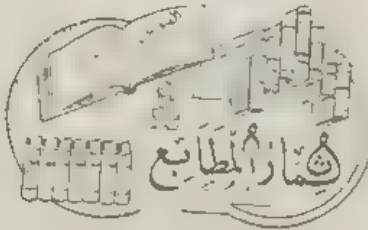 ثِمَارُ الْمَطَابِع